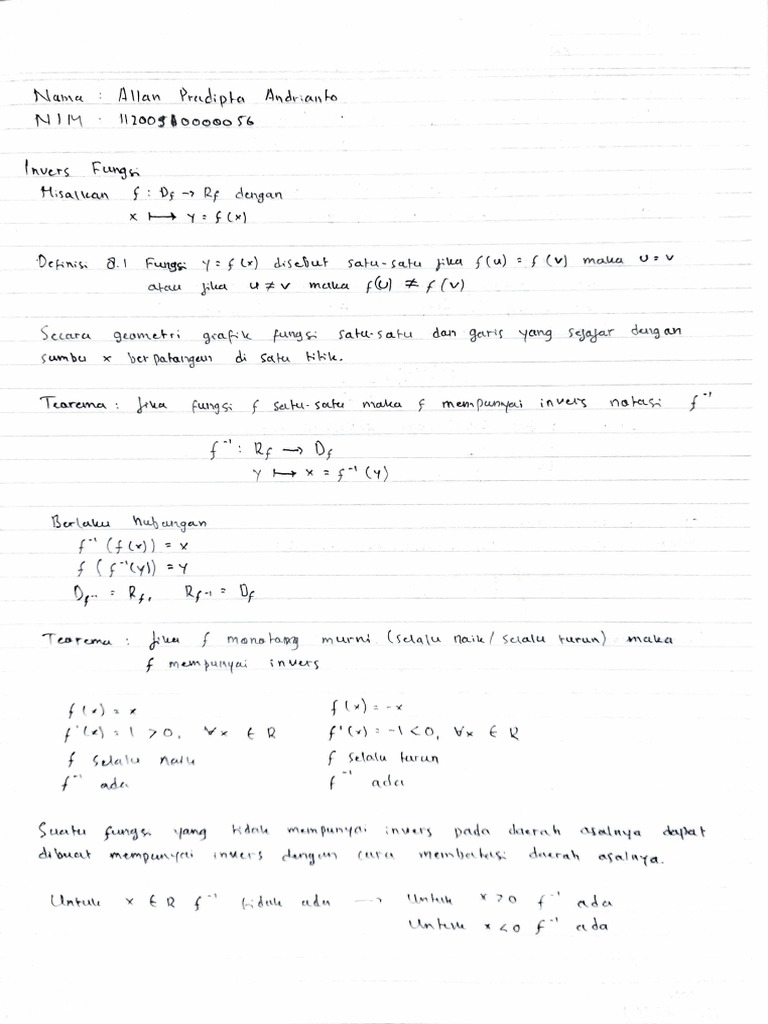 Nama : Allan Pradipta Andrianto
NIM : 11200910000056
Invers Fungsi
Misalkan f : Df → Rf dengan
x ⟼ y = f(x)
Definisi 8.1 Fungsi y = f(x) disebut satu-satu jika f(u) = f(v) maka u = v
atau jika u ≠ v maka f(u) ≠ f(v)
Secara geometri grafik fungsi satu-satu dan garis yang sejajar dengan
sumbu x berpatangan di satu titik.
Teorema : Jika fungsi f satu-satu maka f mempunyai invers notasi f⁻¹
f⁻¹ : Rf → Df
y ⟼ x = f⁻¹(y)
Berlaku hubangan
f⁻¹(f(x)) = x
f(f⁻¹(y)) = y
Df⁻¹ = Rf, Rf⁻¹ = Df
Teorema : Jika f monotang murni (selalu naik / selalu turun) maka
f mempunyai invers
f(x) = x
f'(x) = 1 > 0, ∀x ∈ R
f selalu naik
f⁻¹ ada
f(x) = -x
f'(x) = -1 < 0, ∀x ∈ R
f selalu turun
f⁻¹ ada
Suatu fungsi yang tidak mempunyai invers pada daerah asalnya dapat
dibuat mempunyai invers dengan cara membatasi daerah asalnya.
Untuk x ∈ R f⁻¹ tidak ada → Untuk x > 0 f⁻¹ ada
Untuk x < 0 f⁻¹ ada